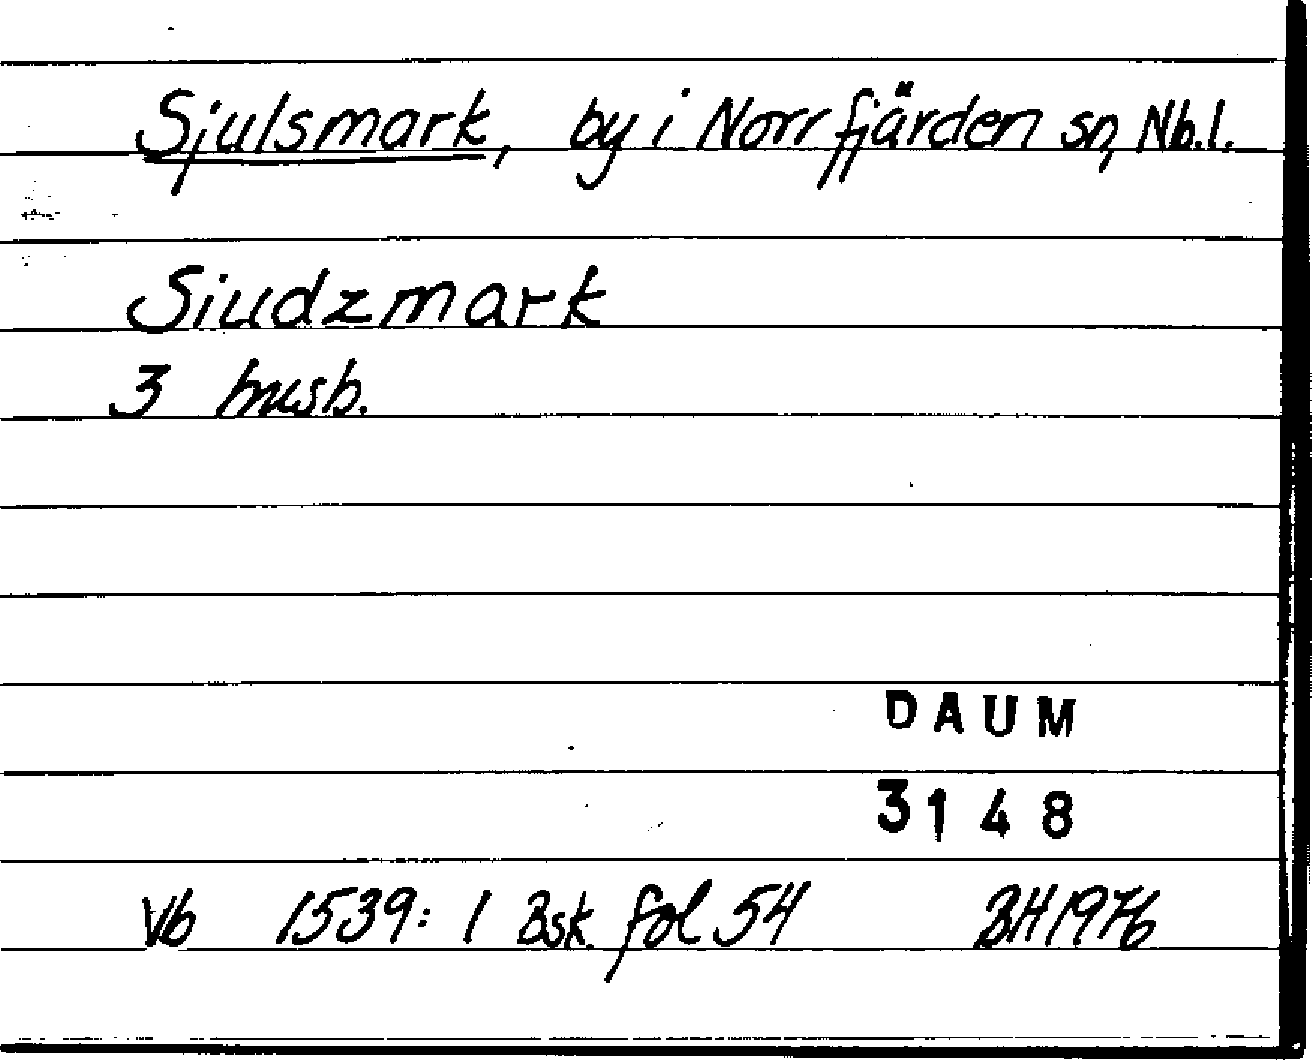 Sjulsmark, by i Norrfjärden sn, Nb.l.
Siudzmark
3 husb.
DAUM
3148
Vb 1539: 1 Bsk. fol 54 BH1976